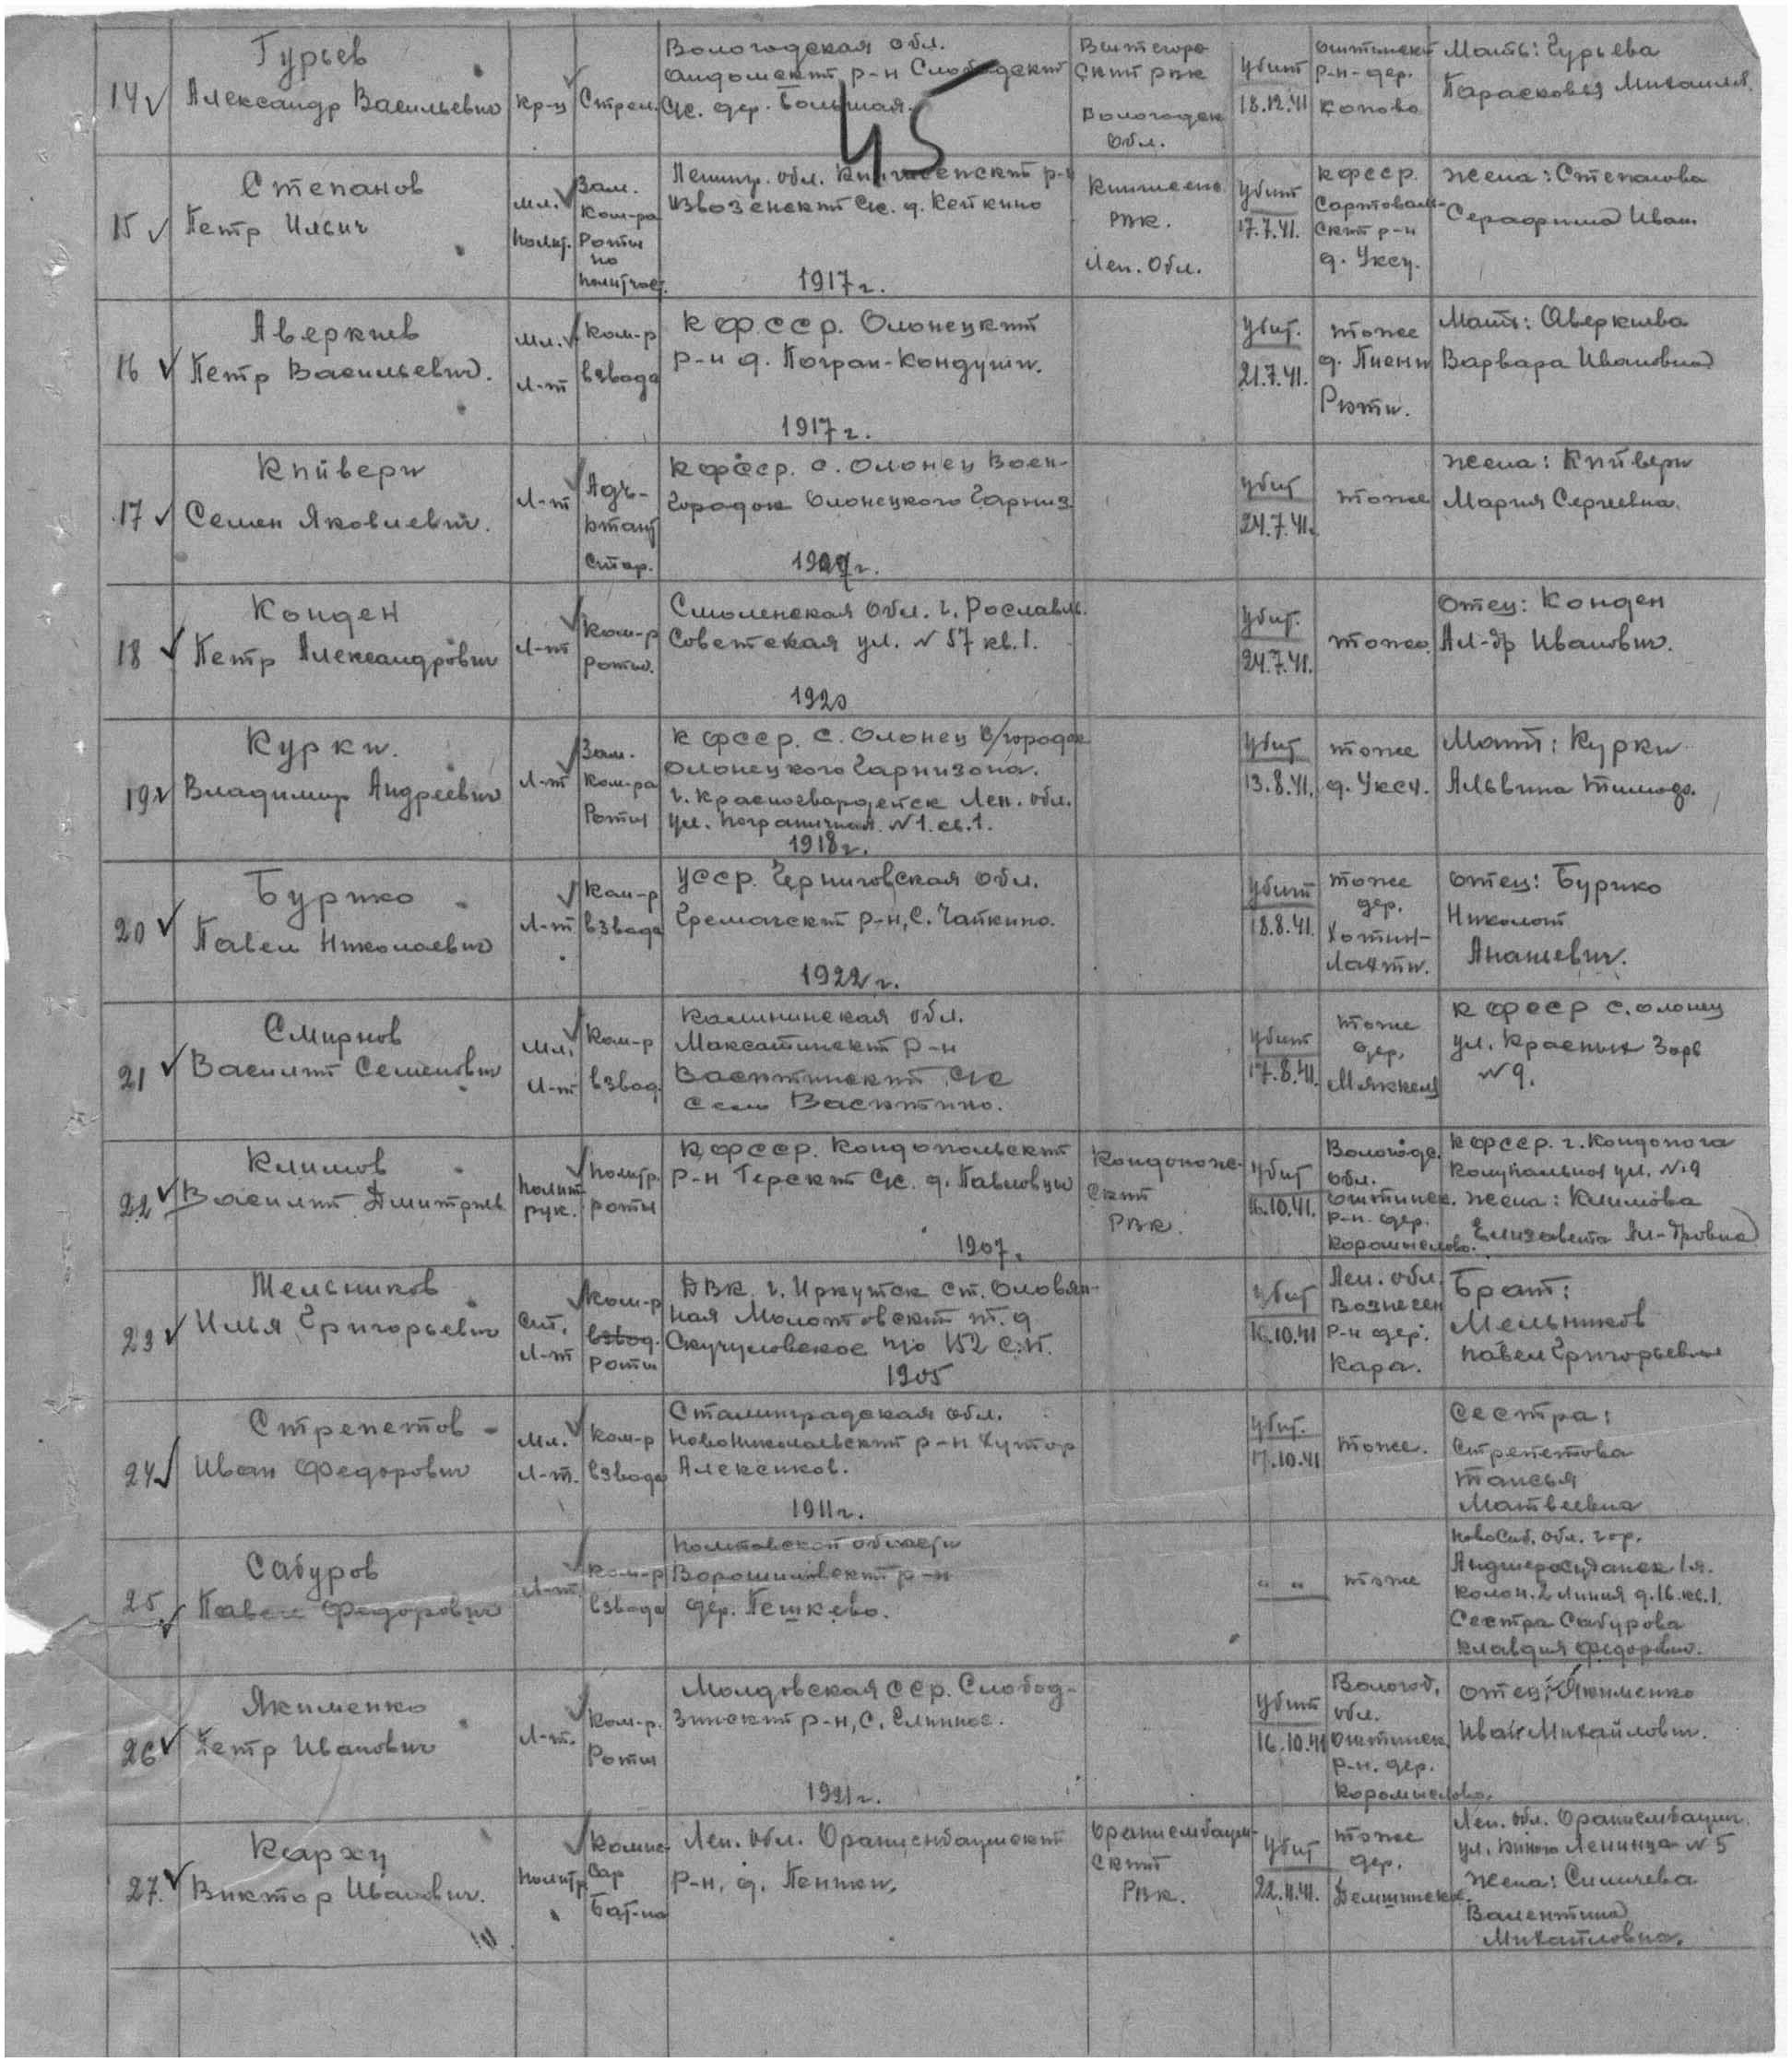 45
14
Гурьев
Александр Васильевич
кр-ц
Стрел.
Вологодская обл.
андомский р-н Слободской
С/с. дер. Большая.
Вытегорс
ский рвк
Вологодск
Обл.
Убит
18.12.41
ошинский
р-н-дер.
Копово
Мать: Гурьева
Парасковья Михайл.
15
Степанов
Петр Ильич
Мл.
полит.
Зам.
Ком-ра
Роты
по
политчас.
Ленинг. обл. Кингисепский р-н
Извозенский С/с. д. Кейкино
1917 г.
Кингисепс.
РВК.
Лен. Обл.
Убит
17.7.41.
КФССР.
Сортоваль-
ский р-н
д. Уксу.
Жена: Степанова
Серафима Иван.
16
Аверкиев
Петр Васильевич.
Мл.
Л-т
Ком-р
взвода
КФССР. Олонецкий
р-н д. Погран-Кондуши.
1917 г.
Убит.
21.7.41.
тоже
д. Пиени
Рюти.
Мать: Аверкиева
Варвара Ивановна
17
Кпйвери
Семен Яковлевич.
Л-т
Адъ-
ютант
Стар.
КФССР. с. Олонец Воен-
городок Олонецкого Гарниз.
Убит
24.7.41.
тоже
Жена: Кпйвери
Мария Сергеевна.
18
Конден
Петр Александрович
Л-т
Ком-р
роты.
Смоленская Обл. г. Рославль.
Советская ул. № 57 кв. 1.
1920
Убит.
24.7.41.
тоже.
Отец: Конден
Ал-др Иванович.
19
Курки.
Владимир Андреевич
Л-т
Зам.
Ком-ра
Роты
КФССР. с. Олонец В/городок
Олонецкого Гарнизона.
г. Красногвардейск Лен. обл.
ул. пограничная. № 1. кв. 1.
1918 г.
Убит
13.8.41.
тоже
д. Уксу.
Мать: Курки
Альвина Тимофе.
20
Бурико
Павел Николаевич
Л-т
Ком-р
взвода
УССР. Черниговская Обл.
Гремячский р-н, С. Чайкино.
1922 г.
Убит
18.8.41.
тоже
дер.
Хотин-
Лахти.
Отец: Бурико
Николай
Ананьевич.
21
Смирнов
Василий Семенович
Мл.
Л-т
Ком-р
взвод.
Калининская обл.
Максатинский р-н
Васютинский С/с
Село Васютино.
Убит
17.8.41.
тоже
дер.
Мяккеля
КФССР с. Олонец
ул. Красных Зорь
№ 9.
22
Климов
Василий Дмитриев
Полит
рук.
Политр.
роты
КФССР. Кондопольский
р-н Терский С/с. д. Павловцы
1907.
Кондопож-
ский
РВК.
Убит
16.10.41.
Вологод.
обл.
ошинск.
р-н. дер.
Коромыслово.
КФССР. г. Кондопога
Комунальная ул. № 9
Жена: Климова
Елизавета Ал-дровна
23
Мельников
Илья Григорьевич
Ст.
Л-т
Ком-р
взвод.
роты
ДВК. г. Иркутск ст. Оловян-
ная Молотовский т. д
п/о 152 с.п.
1905
Убит
16.10.41
Лен. обл.
Вознесен
р-н дер.
Кара.
Брат:
Мельников
Павел Григорьевич
24
Стрепетов
Иван Федорович
Мл.
Л-т.
Ком-р
взвода
Сталинградская обл.
Новониколаевский р-н Хутор
Алексиков.
1911 г.
Убит.
17.10.41
тоже.
Сестра:
Стрепетова
Таисья
Матвеевна
25
Сабуров
Павел Федорович
Л-т.
Ком-р
взвода
области
Ворошиловский р-н
дер. Пешкево.
" "
тоже
НовоСиб. обл. гор.
Анджеросуданск 1я.
Колон. 2 линия д. 16. кв. 1.
Сестра Сабурова
Клавдия Федоровн.
26
Якименко
Петр Иванович
Л-т.
Ком-р.
Роты
Молдовская ССР. Слобод-
зинский р-н, С. Глиное.
1921 г.
Убит
16.10.41
Вологод.
обл.
ошинск.
р-н. дер.
Коромыслово.
Отец: Якименко
Иван Михайлович.
27.
Карху
Виктор Иванович.
Политр
Комис-
сар
Бат-на
Лен. Обл. Ораниенбаумский
р-н, д. Пеники.
Ораниембаум-
ский
РВК.
Убит
22.11.41.
тоже
дер.
Демшинское.
Лен. обл. Ораниембаум.
ул. Юного Ленинца № 5
Жена: Синичева
Валентина
Михайловна.